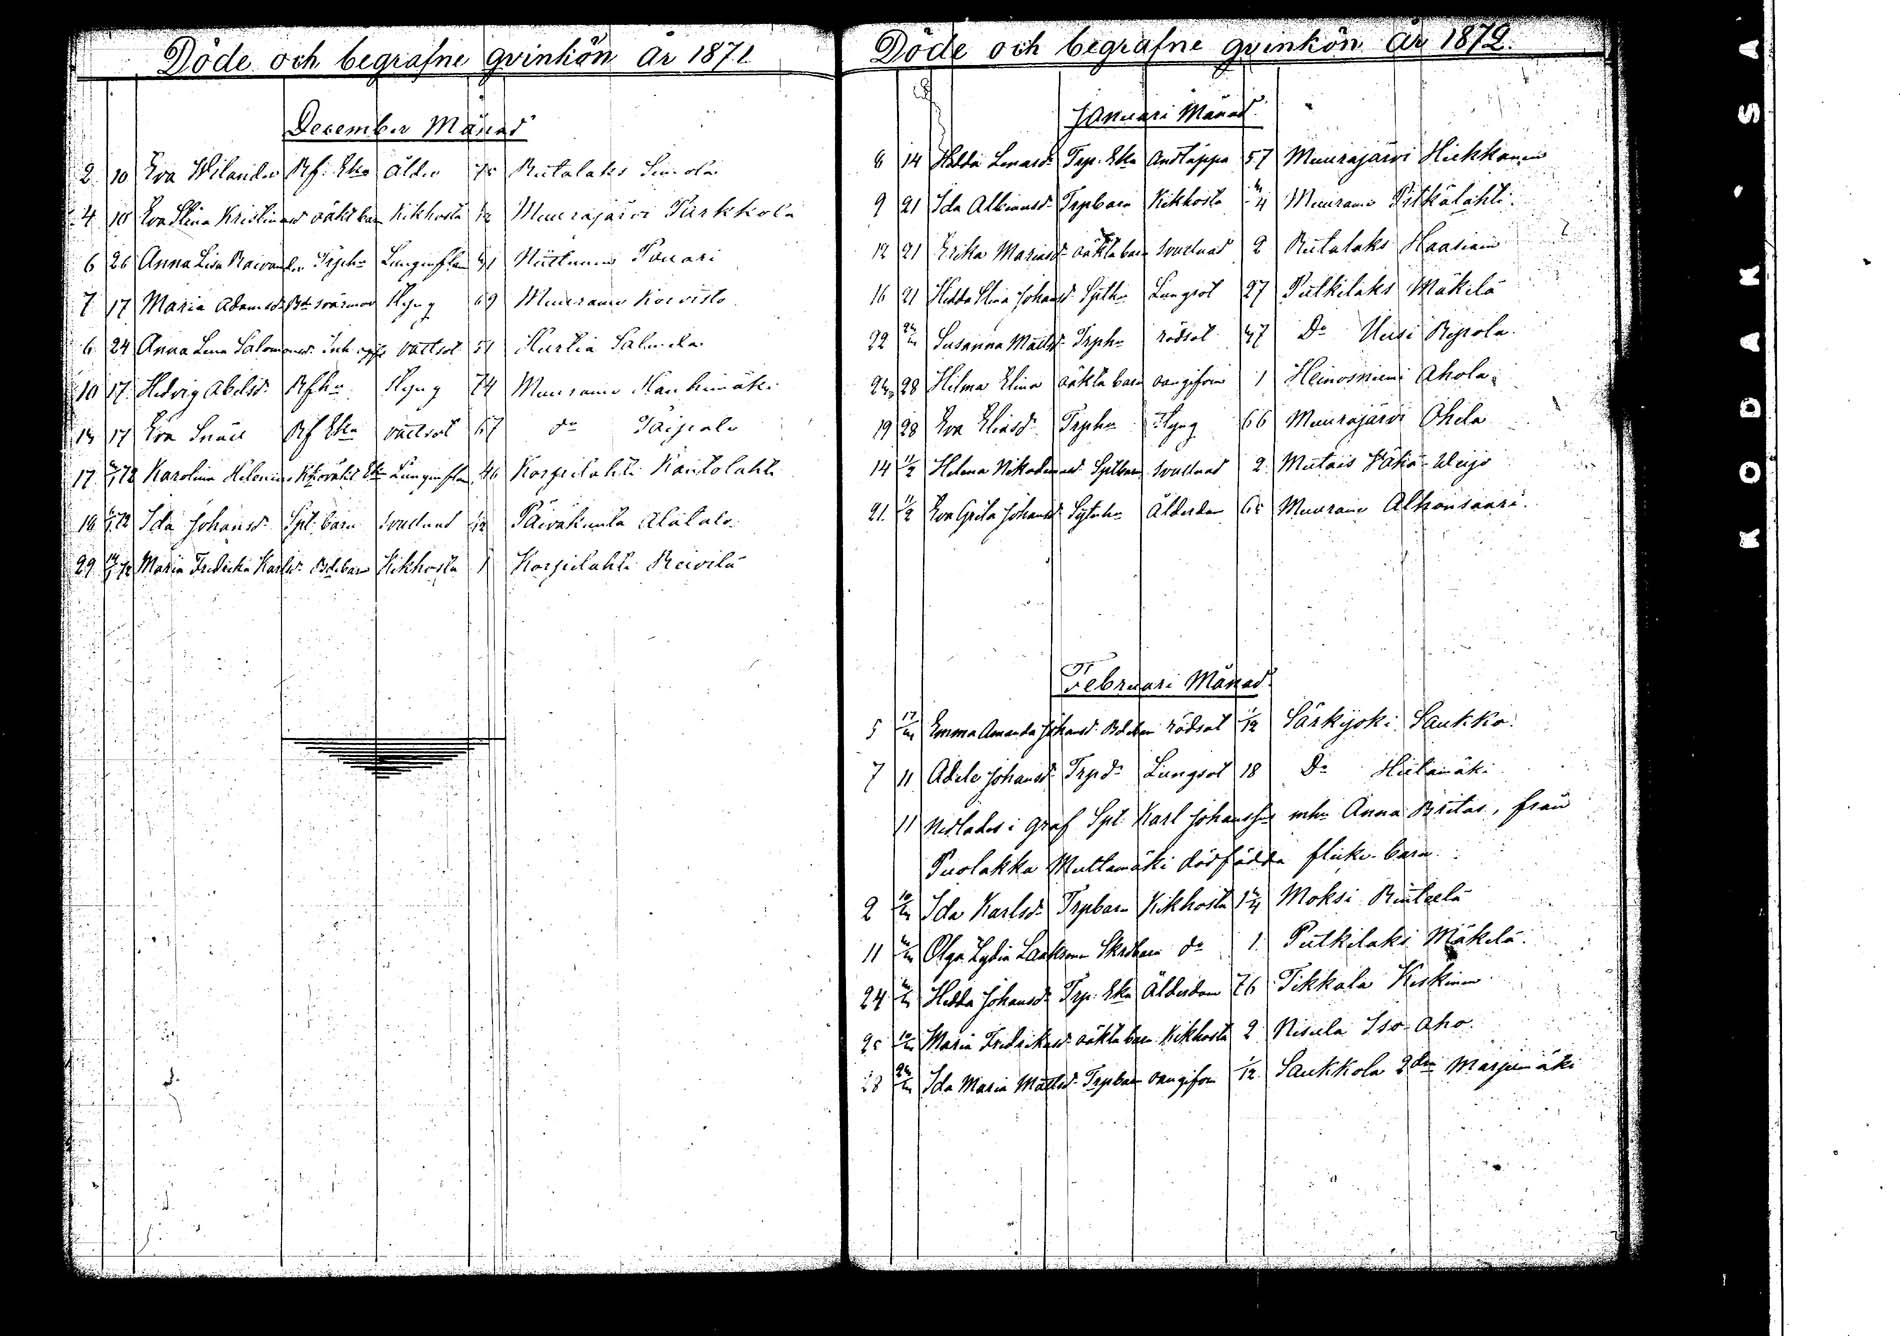 Döde och begrafne qvinkön År 1871
December Månad
2 10 Eva Wilander Rf: Eka Ålder 75 Rutalaks Simola
4 10 Eva Stina Kristinasd oäkt barn Kikhosta 1/12 Muurajärvi Parkkola
6 26 Anna Lisa Trphu Lunginflam 41
7 17 Maria Adamsd Bd svärmor Styng 69 Muurame Koivisto
6 24 Anna Lena Salomonsd Inh vattsot 51 Kurtia
10 17 Hedvig Abelsd Rfhu Styng 74 Muurame Kauhumäki
17 Eva Snäll Rf Eka vattsot 67 do Taipale
17 Karolina Helenius oäkt Eka Lunginflam 46 Korpilahti Rantolahti
Ida Johansd Spt: barn svullnad 1/12 Päiväkunta Alatalo
29 Maria Fredrika Karlsd Bdebarn Kikhosta 1 Korpilahti Reivilä
Döde och begrafne qvinkön År 1872.
Januari Månad.
8 14 Hedda Lenasd Trp: Eka Andtäppa 57 Muurajärvi Hiekkanen
9 21 Ida Albinusd Trpbarn Kikhosta Muurame Pitkälahti
12 21 Erika Mariasd oäkta barn svullnad 2 Rutalaks Haasiain
16 21 Hedda Stina Johansd Spthu Lungsot 27 Putkilaks Mäkelä
22 Susanna Mattsd Trphu rödsot 47 Do Uusi Repola
28 Hilma Elina oäkta barn 1 Heinosniemi Ahola
19 28 Eva Eliasd Trphu Styng 66 Muurajärvi Ohela
14 11/2 Helena Nikodemusd Sptbarn svullnad 2 Mutais
21. 11/2 Eva Greta Johansd Sytnhu Ålderdom 65 Muurame Alhonsaari.
Februari Månad.
5 Emma Amanda Johansd Bdebarn rödsot 1/12 Särkijoki Saukko.
7 11 Adele Johansd Trpd Lungsot 18 Do Hietamäki
11 Nedlades i graf Spt: Karl Johanss mhu Anna Britas, från
Puolakka Multamäki dödfödda flicko barn.
2 Ida Karlsd Trpbarn Kikhosta Moksi Rutselä
11 Olga Lydia Laaksonen Skrdbarn do 1 Putkilaks Mäkelä.
24 Hedda Johansd Trp: Eka Ålderdom 76 Tikkala Keskinen
25 Maria Fredrikasd oäkta barn Kikhosta 2 Nisula Iso-aho.
28 Ida Maria Mattsd Trpbarn 1/12 Saukkola 2dra Marjomäki
KODAK - SA